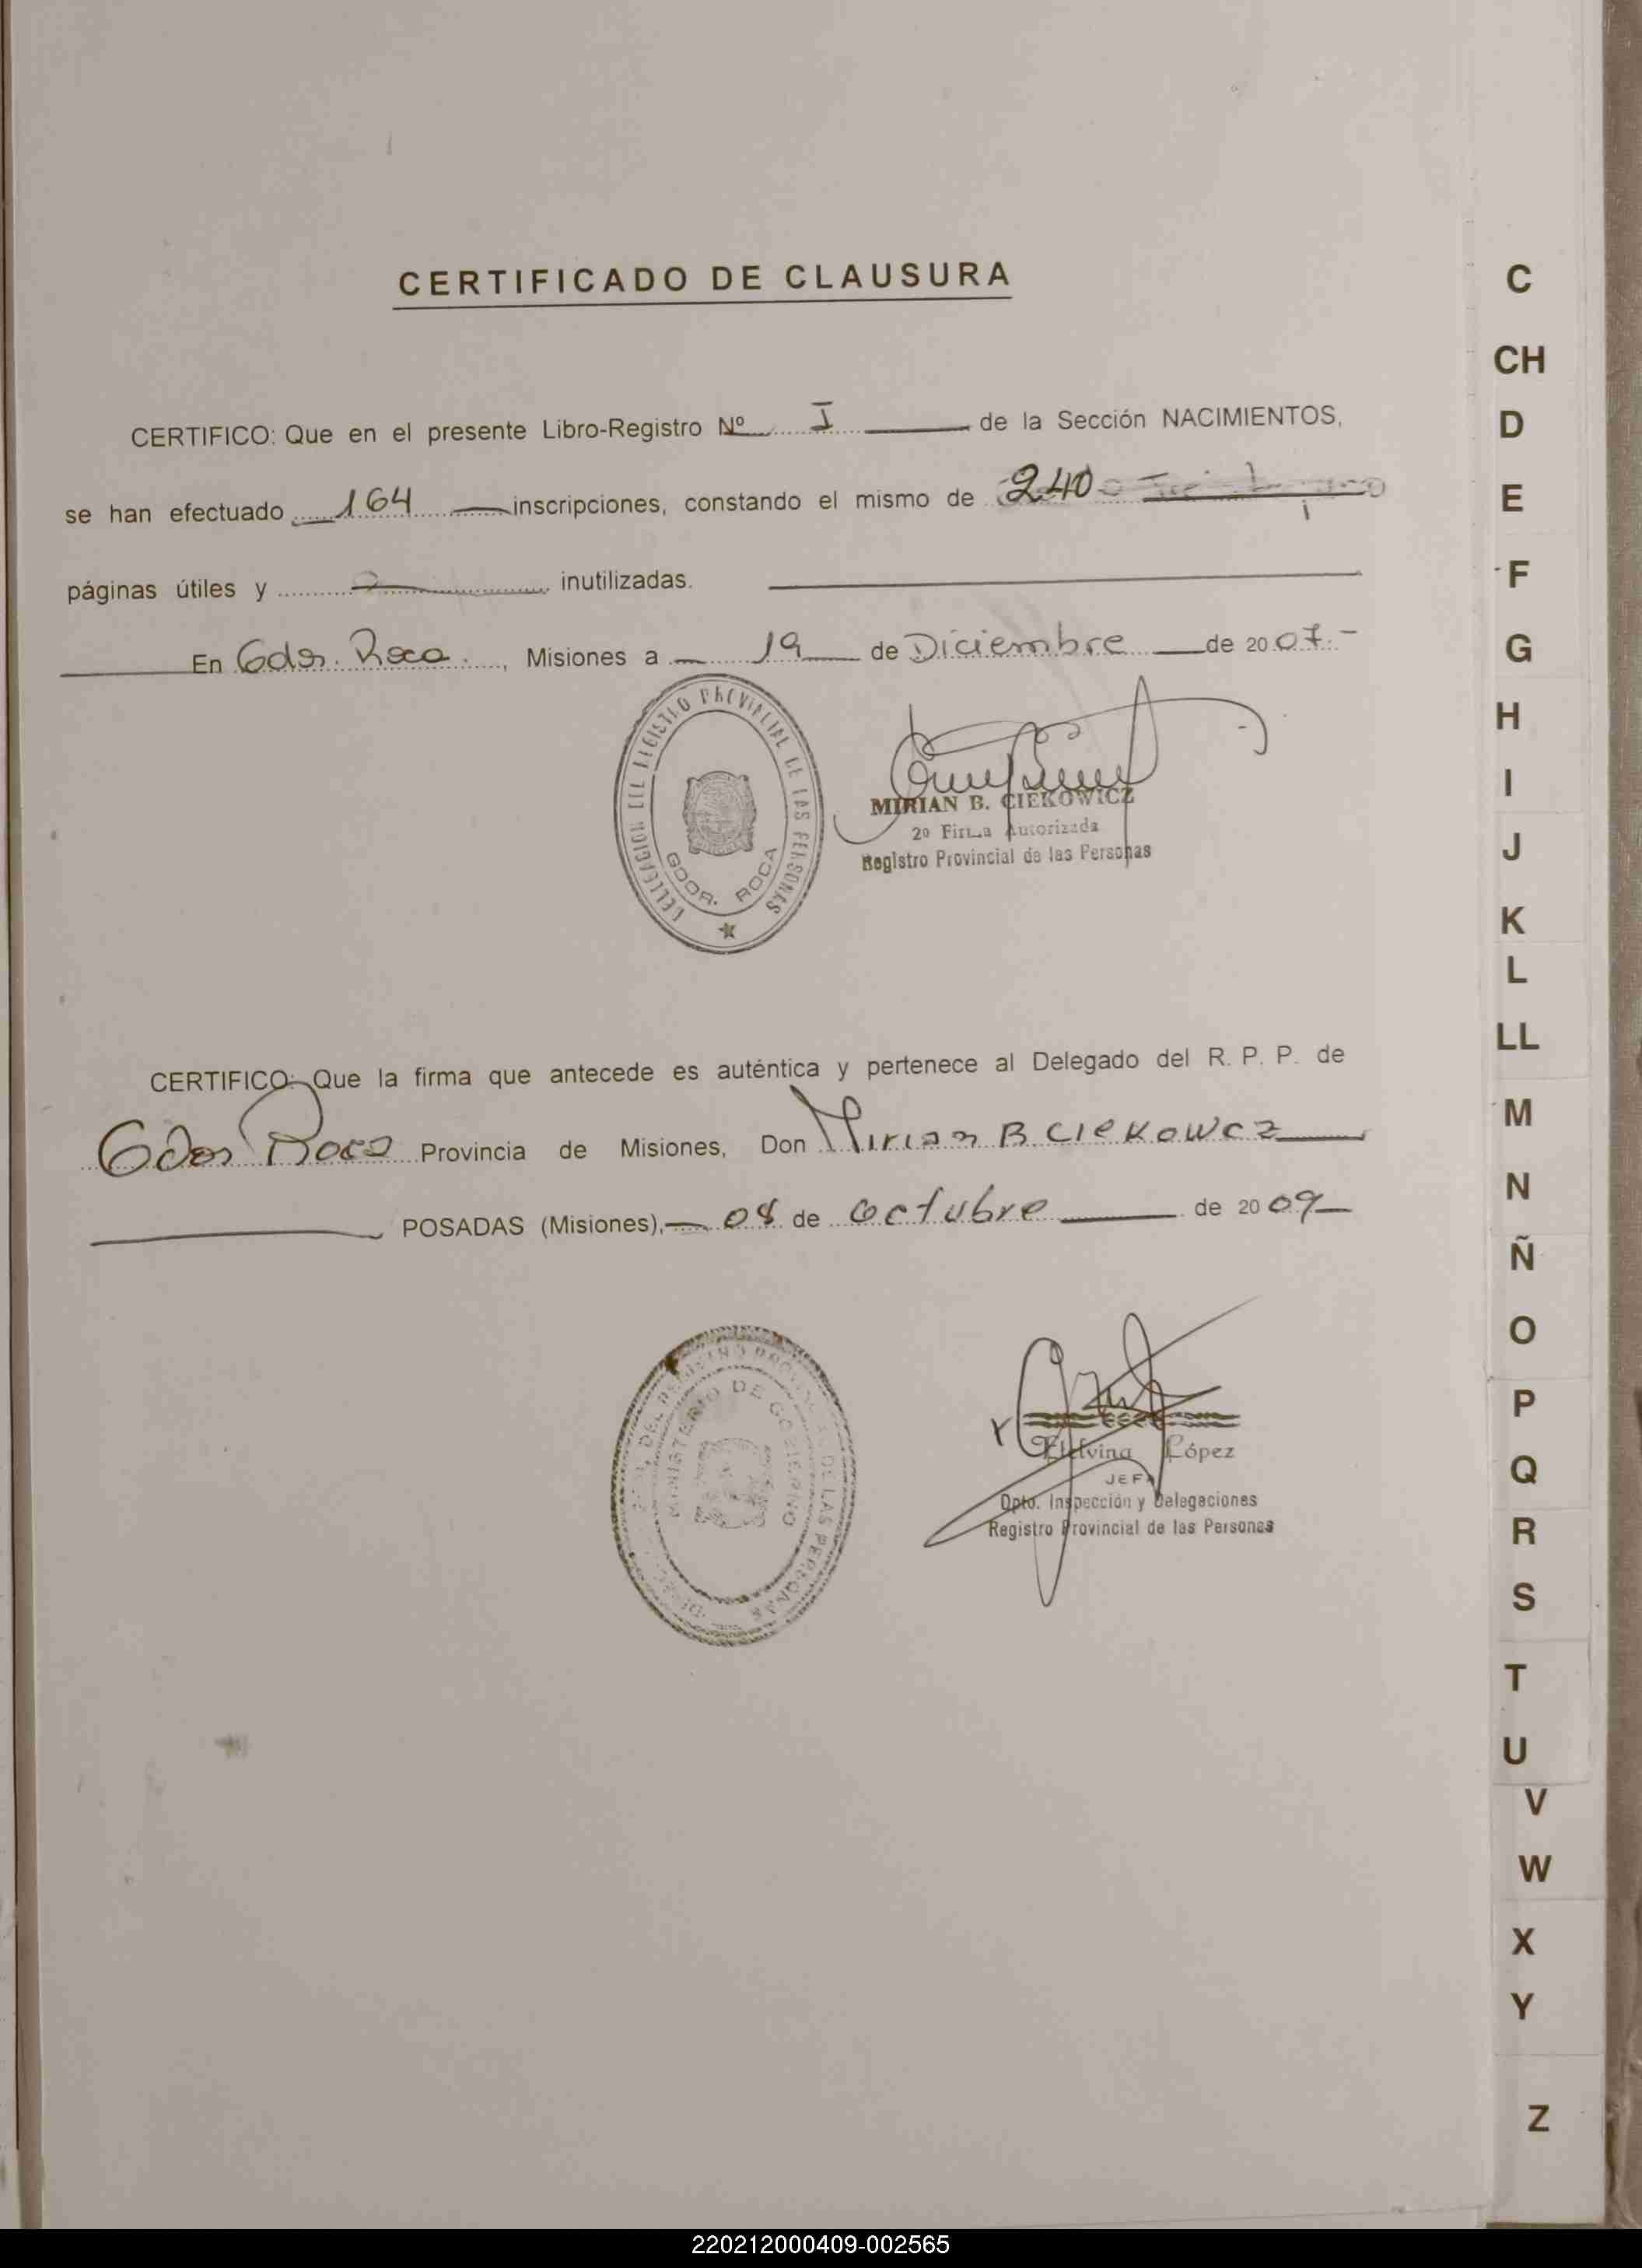 CERTIFICADO DE CLAUSURA
CERTIFICO: Que en el presente Libro-Registro Nº I de la Sección NACIMIENTOS,
se han efectuado 164 inscripciones, constando el mismo de 240
páginas útiles y inutilizadas.
En Gdor. Roca, Misiones a 19 de Diciembre de 2007.-
DELEGACION DEL REGISTRO PROVINCIAL DE LAS PERSONAS
GDOR. ROCA
MIRIAN B. CIEKOWICZ
2º Firma Autorizada
Registro Provincial de las Personas
CERTIFICO: Que la firma que antecede es auténtica y pertenece al Delegado del R. P. P. de
Gdor Roca Provincia de Misiones, Don Mirian B Ciekowcz
POSADAS (Misiones), 08 de Octubre de 2009
DEL REGISTRO PROVINCIAL DE LAS PERSONAS
MINISTERIO DE GOBIERNO
Etelvina López
JEFA
Dpto. Inspección y Delegaciones
Registro Provincial de las Personas
C
CH
D
E
F
G
H
I
J
K
L
LL
M
N
Ñ
O
P
Q
R
S
T
U
V
W
X
Y
Z
220212000409-002565